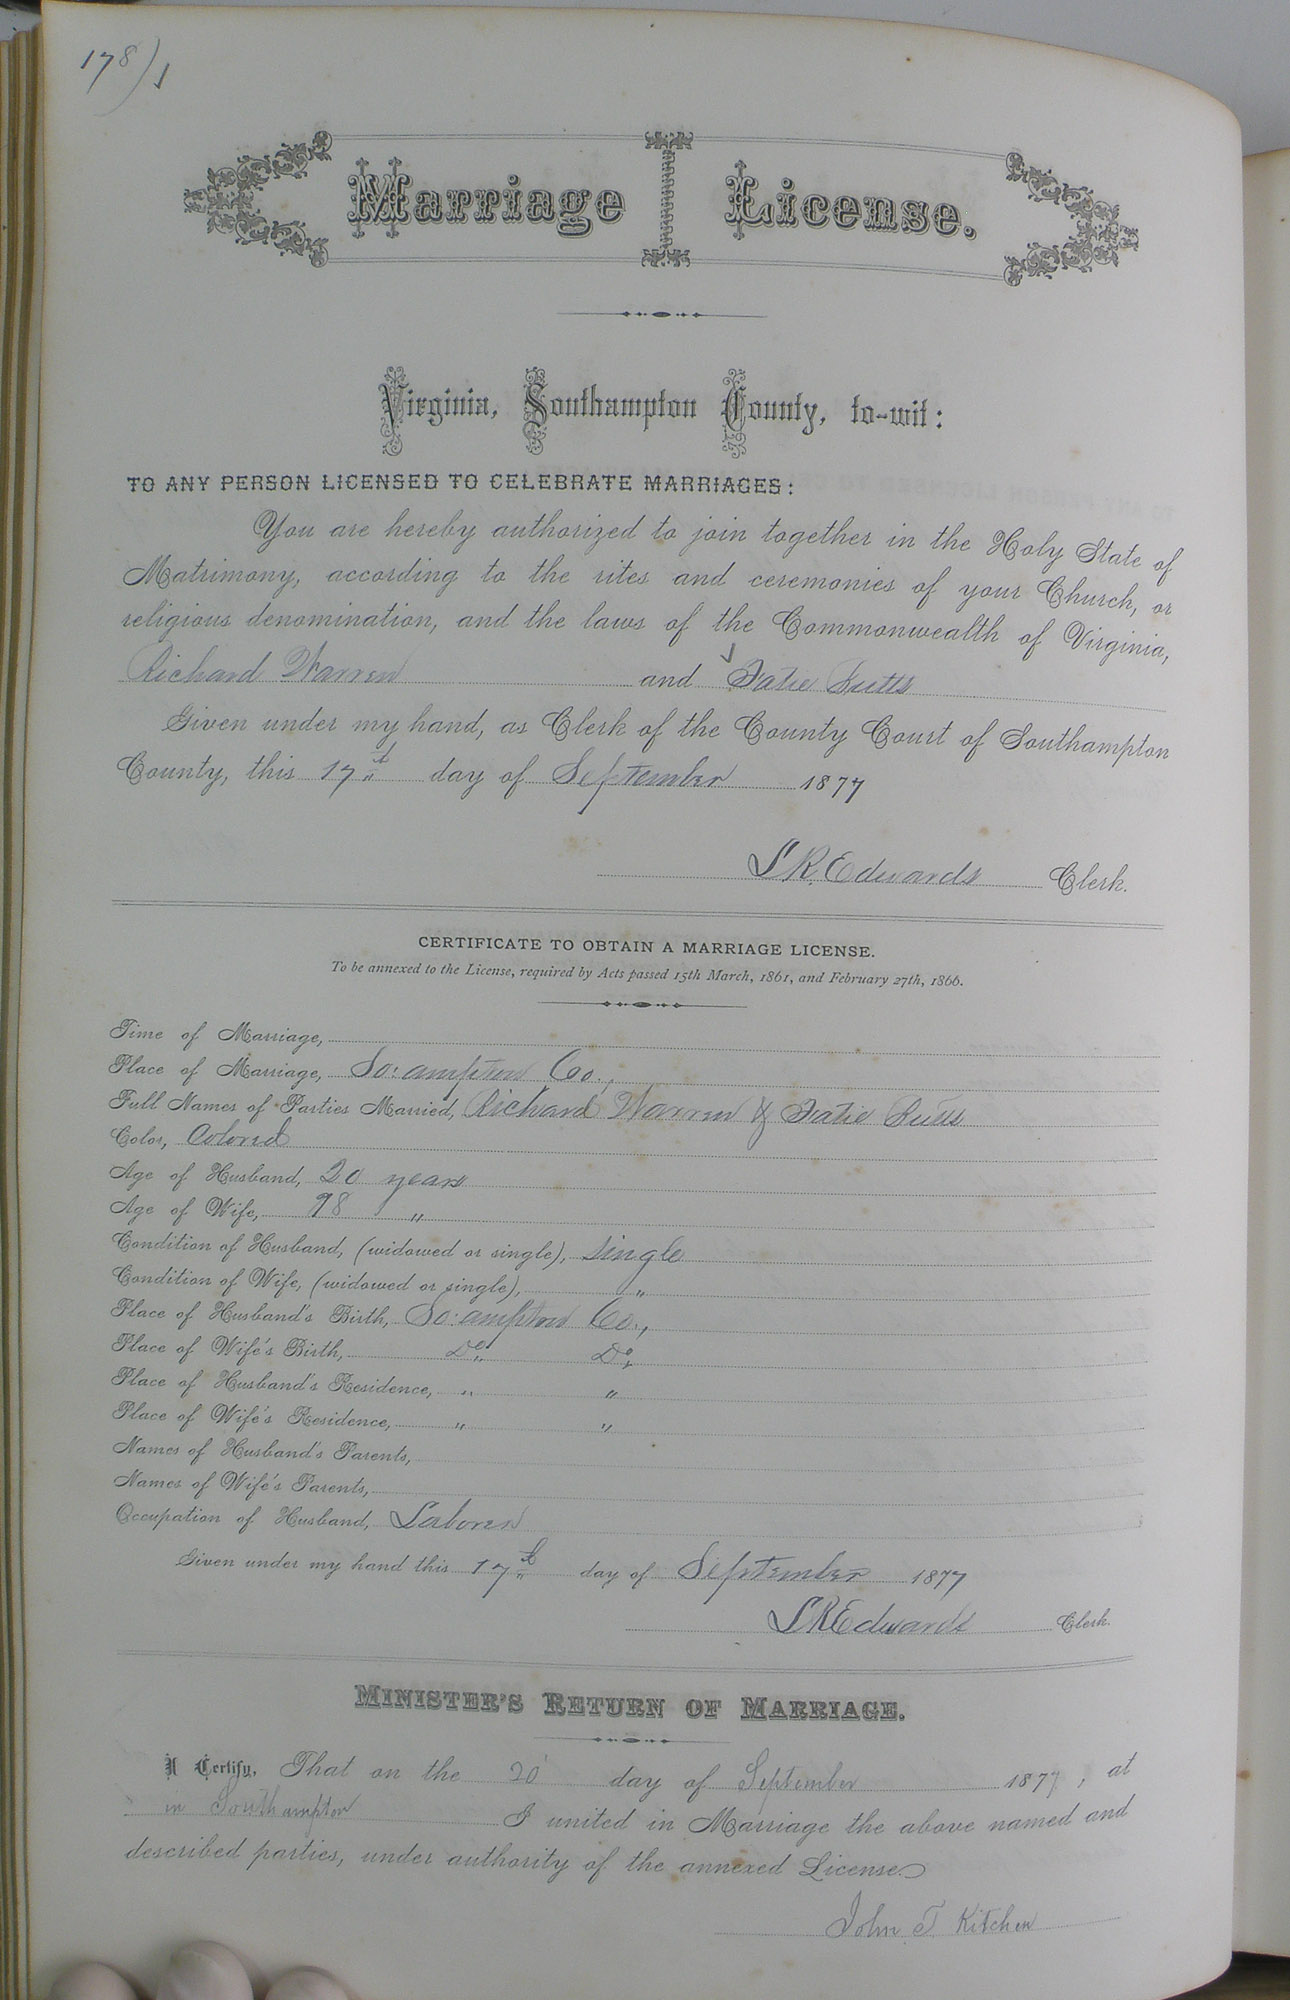 178)
Marriage License.
Virginia, Southampton County, to-wit:
TO ANY PERSON LICENSED TO CELEBRATE MARRIAGES:
You are hereby authorized to join together in the Holy State of
Matrimony, according to the rites and ceremonies of your Church, or
religious denomination, and the laws of the Commonwealth of Virginia,
Richard Warren and
Given under my hand, as Clerk of the County Court of Southampton
County, this 17th day of September 1877
L R Edwards Clerk.
CERTIFICATE TO OBTAIN A MARRIAGE LICENSE.
To be annexed to the License, required by Acts passed 15th March, 1861, and February 27th, 1866.
Time of Marriage,
Place of Marriage, So:ampton Co.,
Full Names of Parties Married, Richard Warren &
Color, Colored
Age of Husband, 20 years
Age of Wife, 18 "
Condition of Husband, (widowed or single), Single
Condition of Wife, (widowed or single), "
Place of Husband's Birth, So:ampton Co.,
Place of Wife's Birth, Do Do
Place of Husband's Residence, " "
Place of Wife's Residence, " "
Names of Husband's Parents,
Names of Wife's Parents,
Occupation of Husband, Laborer
Given under my hand this 17th day of September 1877
L R Edwards Clerk.
MINISTER'S RETURN OF MARRIAGE.
I Certify, That on the 20 day of September 1877, at
in Southampton I united in Marriage the above named and
described parties, under authority of the annexed License.
John T Kitchen